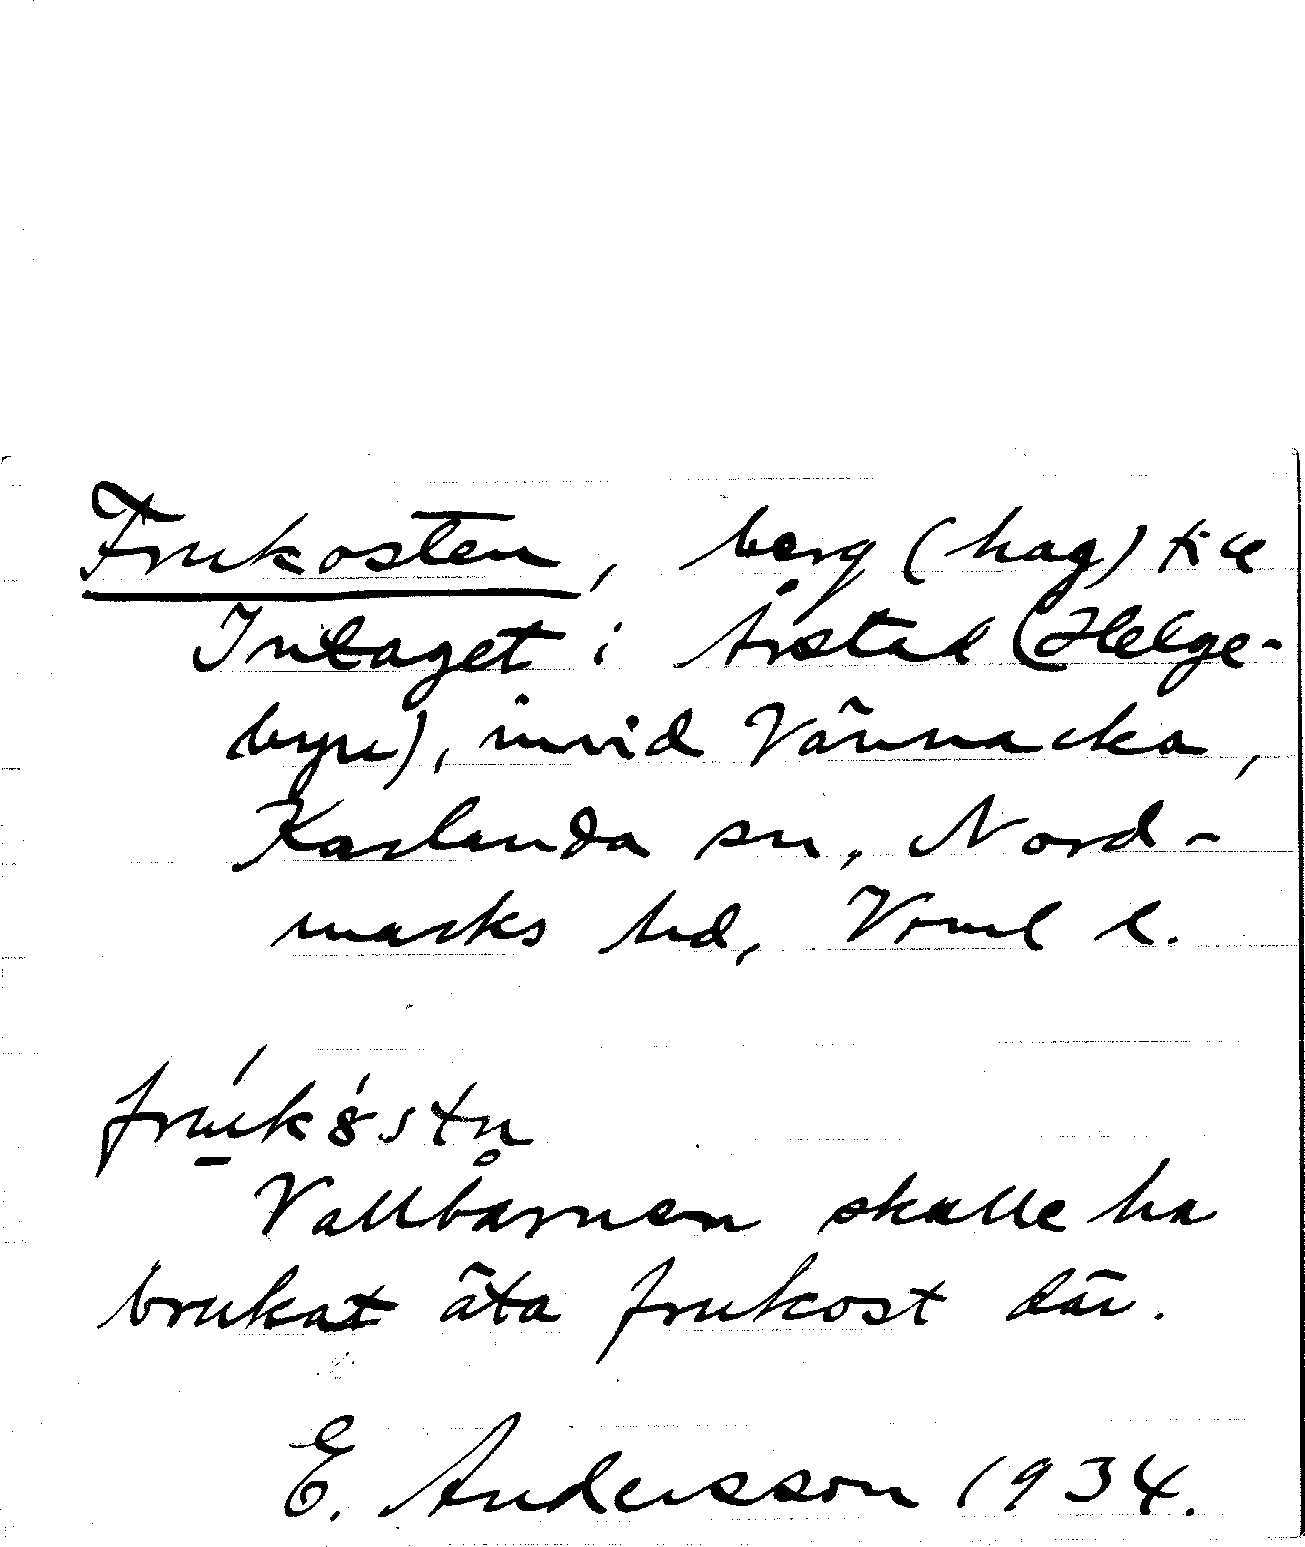 Frukosten, berg (hag) till
Intaget i Årstad (Helge-
byn), invid Vännacka,
Karlanda sn, Nord-
marks hd, Vrml l.
frúkǿstn̥
Vallbarnen skulle ha
brukat äta frukost där.
E. Andersson 1934.